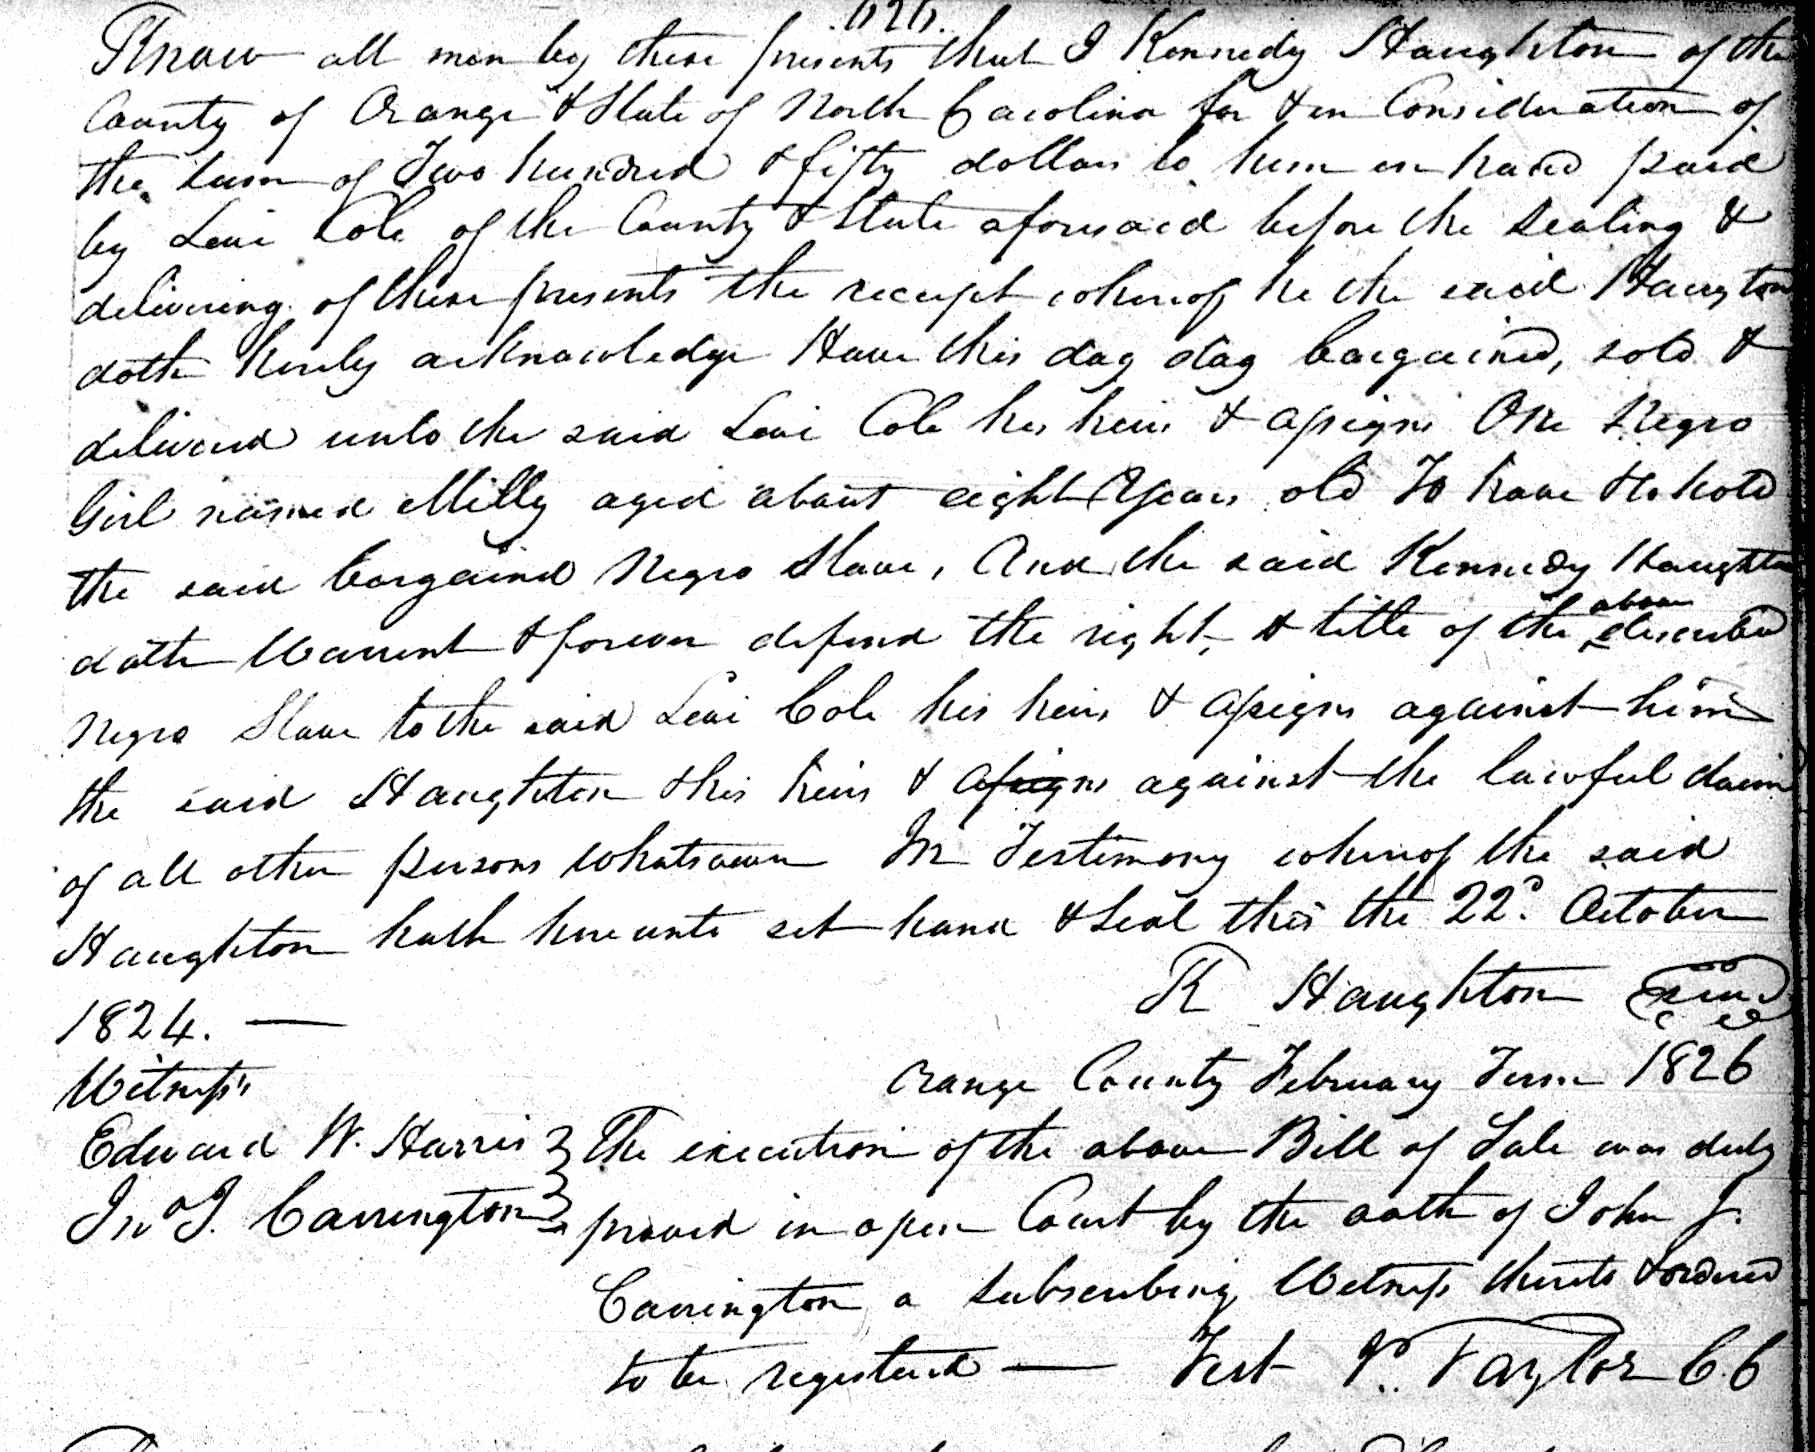 Know all men by these presents that I Kennedy Haughton of the
County of Orange & State of North Carolina for & in Consideration of
the sum of Two hundred & fifty dollars to him in hand paid
by Levi Cole of the County & State aforesaid before the sealing &
delivering of these presents the receipt whereof he the said Haugton
doth hereby acknowledge Have this day day bargained, sold &
delivered unto the said Levi Cole his heirs & assigns One Negro
Girl named Milly aged about eight years old To have & to hold
the said bargained Negro Slave, And the said Kennedy Haughton
doth Warrent & forever defend the right, & title of the above described
Negro Slave to the said Levi Cole his heirs & assigns against him
the said Haughton & his heirs & assigns against the lawful claim
of all other persons whatsoever In Testimony whereof the said
Haughton hath hereunto set hand & Seal this the 22d. October
1824. —
K Haughton Seal
Witness
Orange County February Term 1826
Edward W. Harris
Jno J. Carrington
The execution of the above Bill of Sale was duly
proved in open Court by the oath of John J.
Carrington a subscribing Witness thereto & ordered
to be registered — Test J. Taylor C.C